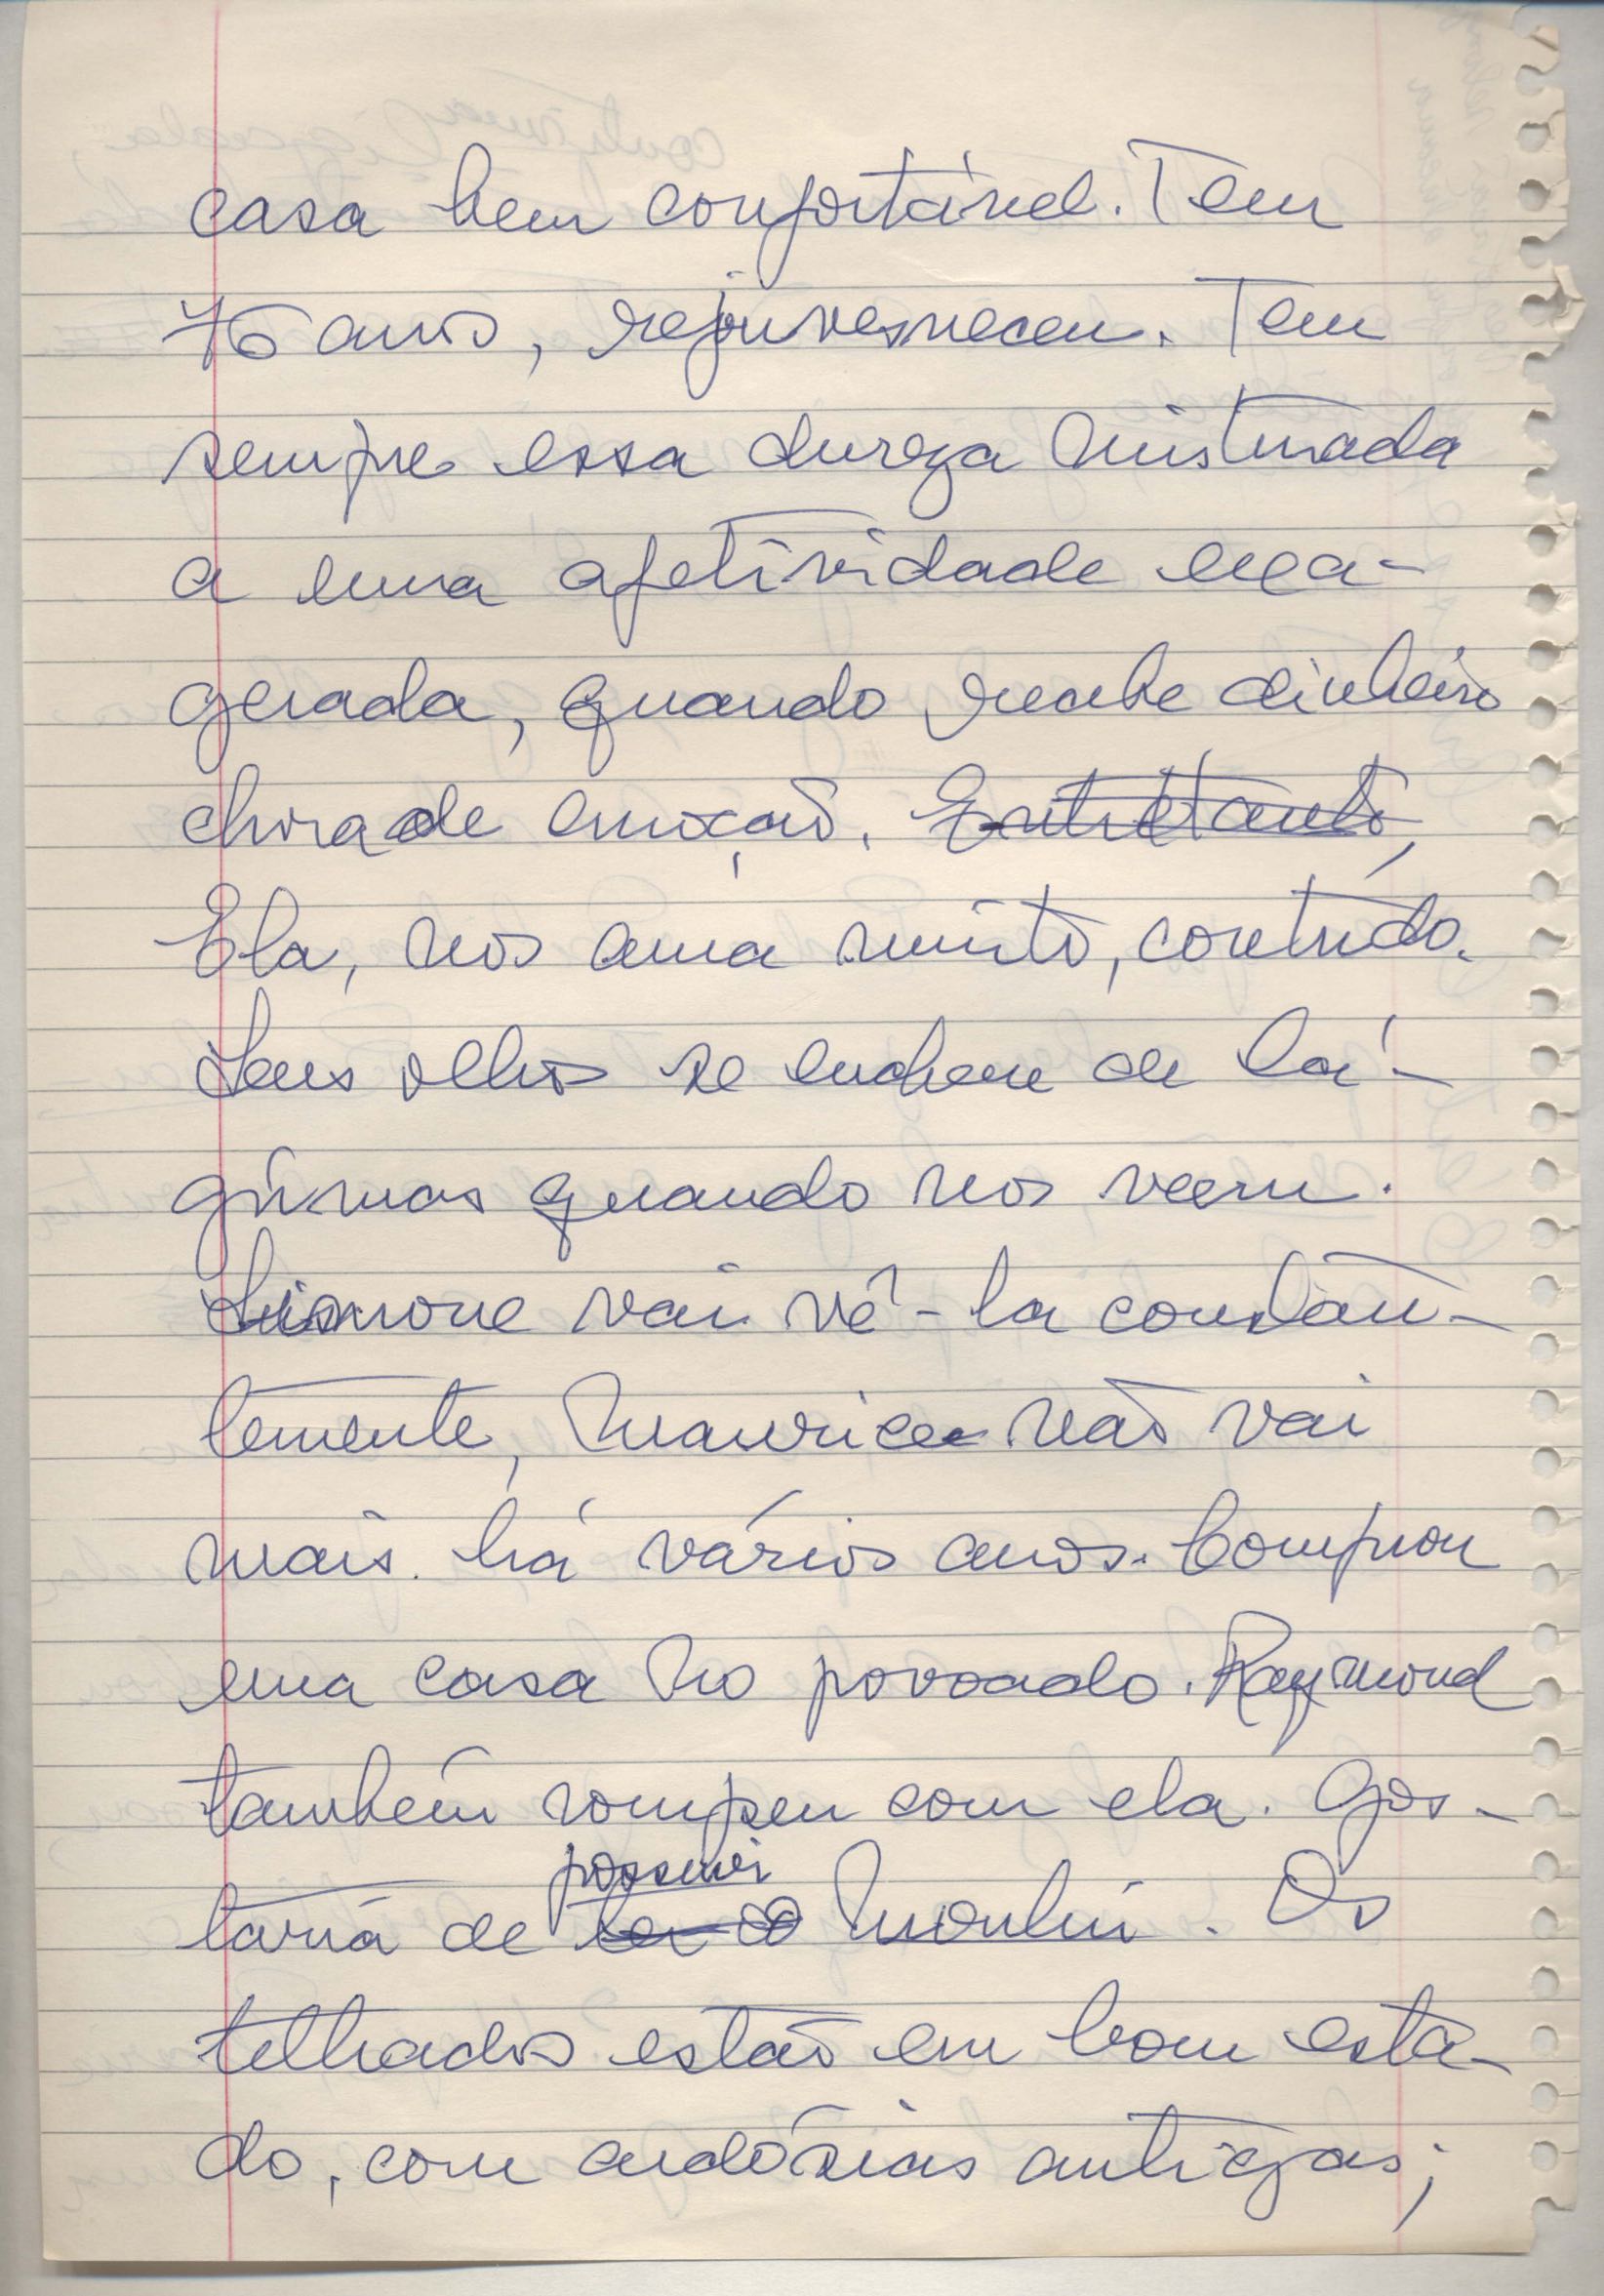 casa bem confortável. Tem
76 anos, rejuvesneceu. Tem
sempre essa dureza misturada
a uma afetividade exa-
gerada, quando recebe dinheiro
chora de emoção. Entretanto,
Ela, nos ama muito, contudo.
Seus olhos se enchem de lá-
grimas quando nos veem.
Simone vai vê-la constan-
temente, Maurice não vai
mais há vários anos. Comprou
uma casa no povoado. Raymond
também rompeu com ela. Gos-
possuir
taria de ter o Moulin. Os
telhados estão em bom esta-
do, com ardósias antigas;